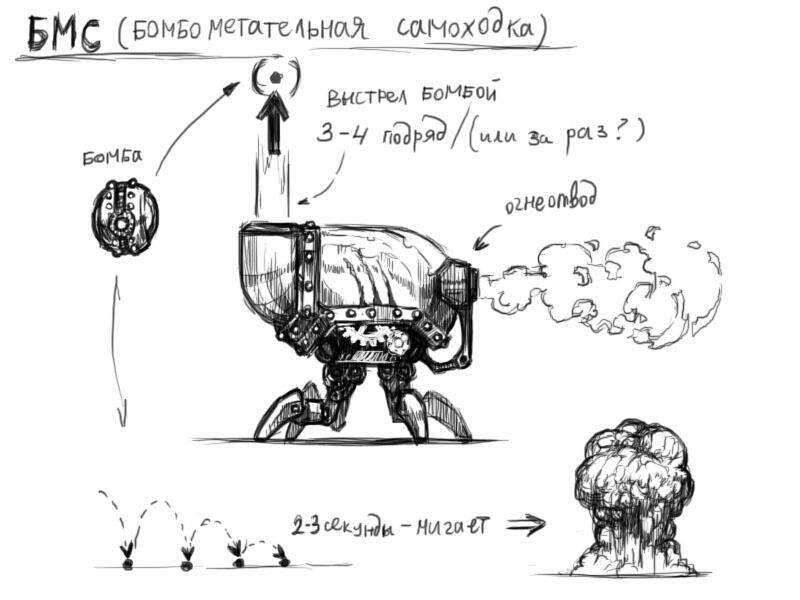 БМС (БОМБОМЕТАТЕЛЬНАЯ САМОХОДКА)
ВЫСТРЕЛ БОМБОЙ
3-4 подряд/(или за раз?)
БОМБА
огнеотвод
2-3 секунды - мигает